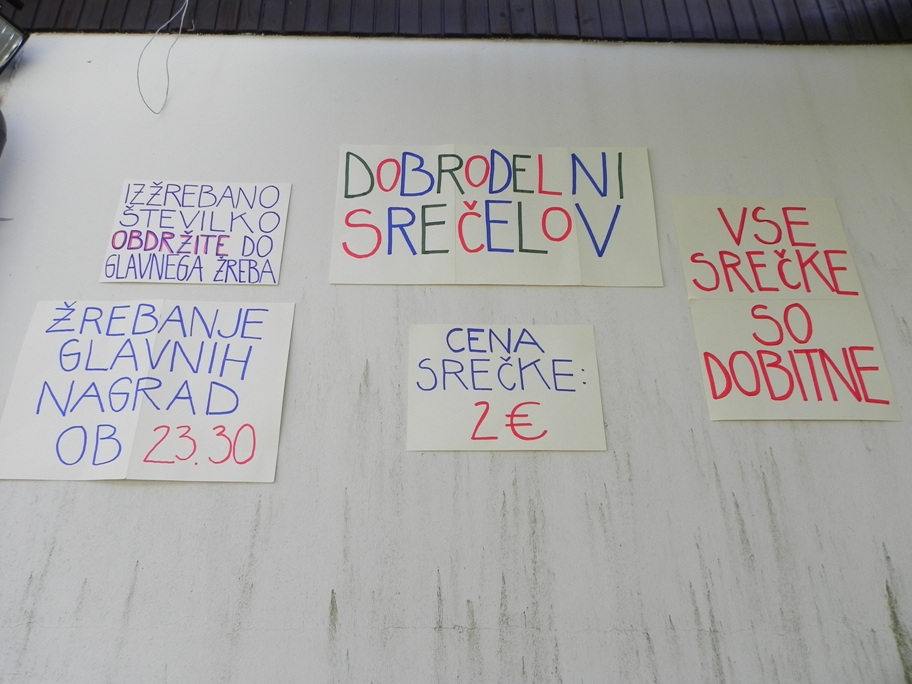 IZŽREBANO
ŠTEVILKO
OBDRŽITE DO
GLAVNEGA ŽREBA
DOBRODELNI
SREČELOV
VSE
SREČKE
SO
DOBITNE
ŽREBANJE
GLAVNIH
NAGRAD
OB 23.30
CENA
SREČKE:
2 €